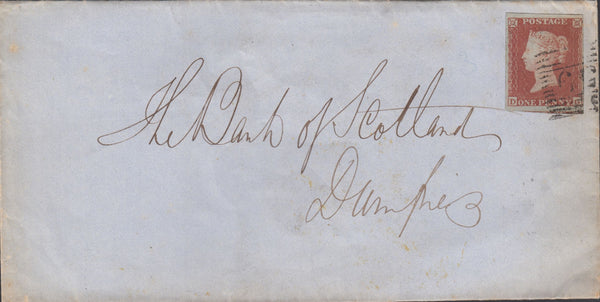 POSTAGE
ONE PENNY
The Bank of Scotland
Dumfries